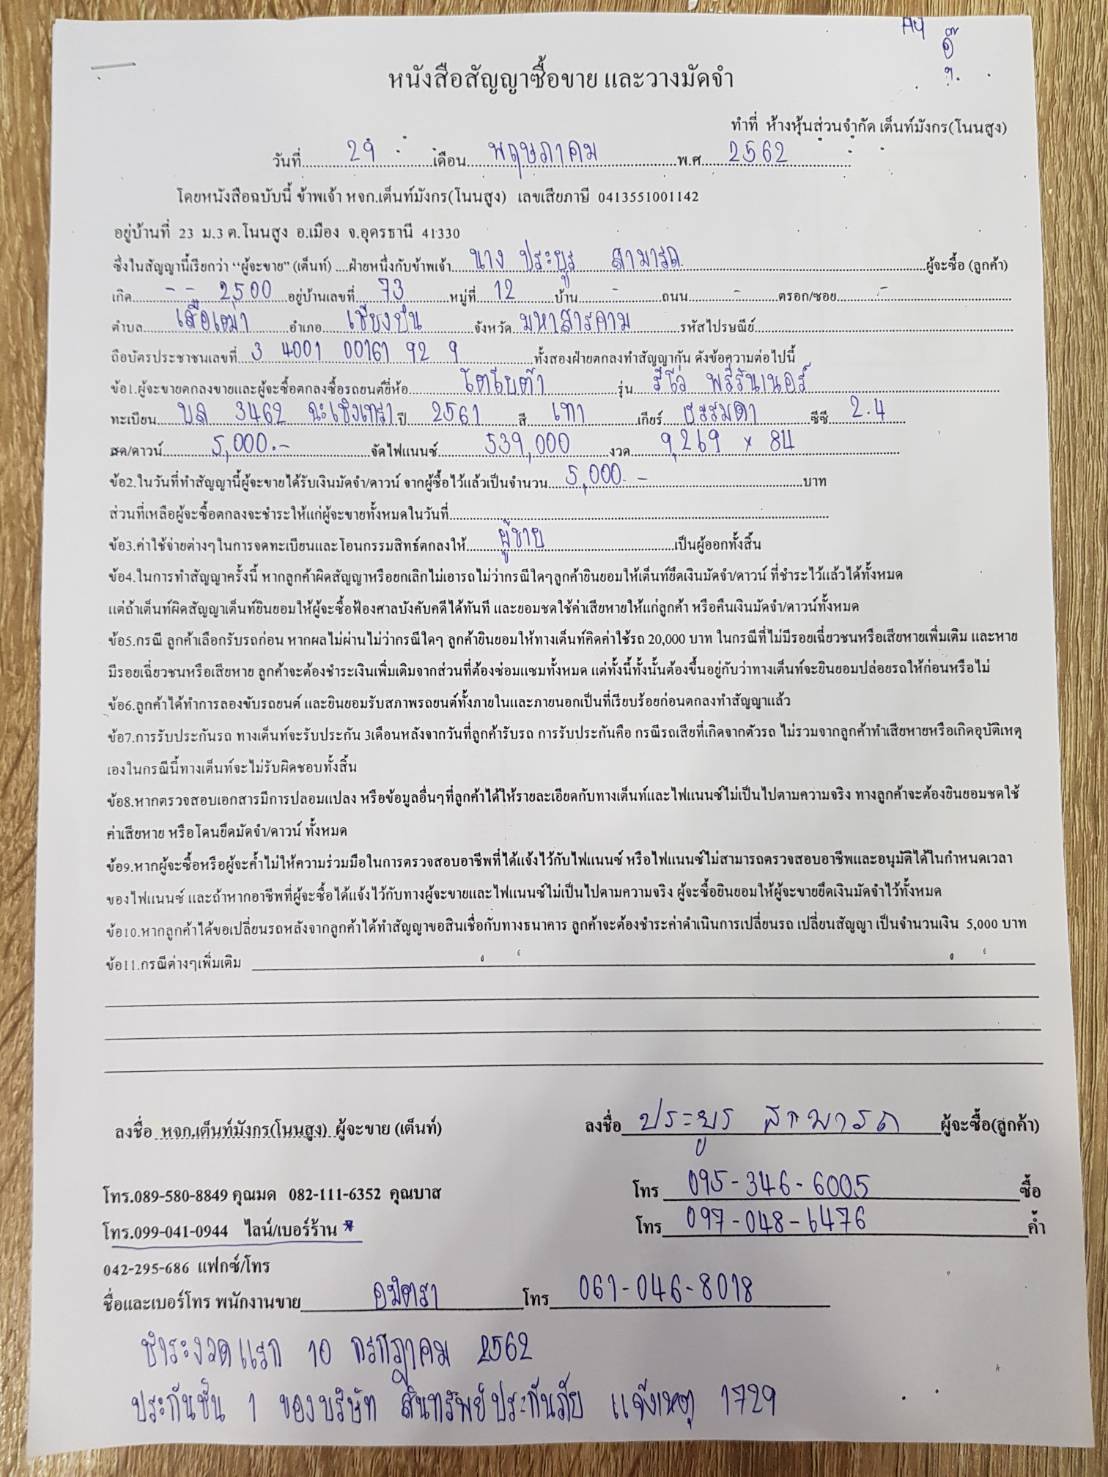 หนังสือสัญญาซื้อขาย และวางมัดจำ
ทำที่ ห้างหุ้นส่วนจำกัด เต็นท์มังกร(โนนสูง)
วันที่ 29 เดือน พฤษภาคม พ.ศ. 2562
โดยหนังสือฉบับนี้ ข้าพเจ้า หจก.เต็นท์มังกร(โนนสูง) เลขเสียภาษี 0413551001142
อยู่บ้านที่ 23 ม.3 ต.โนนสูง อ.เมือง จ.อุดรธานี 41330
ซึ่งในสัญญานี้เรียกว่า "ผู้จะขาย" (เต็นท์) ....ฝ่ายหนึ่งกับข้าพเจ้า นาง ประยูร สามารถ ผู้จะซื้อ (ลูกค้า)
เกิด - - 2500 อยู่บ้านเลขที่ 73 หมู่ที่ 12 บ้าน - ถนน - ตรอก/ซอย -
ตำบล เสือเฒ่า อำเภอ เชียงยืน จังหวัด มหาสารคาม รหัสไปรษณีย์
ถือบัตรประชาชนเลขที่ 3 4001 00161 92 9 ทั้งสองฝ่ายตกลงทำสัญญากัน ดังข้อความต่อไปนี้
ข้อ1.ผู้จะขายตกลงขายและผู้จะซื้อตกลงซื้อรถยนต์ยี่ห้อ โตโยต้า รุ่น รีโว่ พรีรันเนอร์
ทะเบียน บล 3462 ฉะเชิงเทรา ปี 2561 สี เทา เกียร์ ธรรมดา ซีซี 2.4
สด/ดาวน์ 5,000.- จัดไฟแนนซ์ 539,000 งวด 9,269 x 84
ข้อ2.ในวันที่ทำสัญญานี้ผู้จะขายได้รับเงินมัดจำ/ดาวน์ จากผู้ซื้อไว้แล้วเป็นจำนวน 5,000.- บาท
ส่วนที่เหลือผู้จะซื้อตกลงจะชำระให้แก่ผู้จะขายทั้งหมดในวันที่
ข้อ3.ค่าใช้จ่ายต่างๆในการจดทะเบียนและโอนกรรมสิทธ์ตกลงให้ ผู้ขาย เป็นผู้ออกทั้งสิ้น
ข้อ4.ในการทำสัญญาครั้งนี้ หากลูกค้าผิดสัญญาหรือยกเลิกไม่เอารถไม่ว่ากรณีใดๆลูกค้ายินยอมให้เต็นท์ยึดเงินมัดจำ/ดาวน์ ที่ชำระไว้แล้วได้ทั้งหมด
แต่ถ้าเต็นท์ผิดสัญญาเต็นท์ยินยอมให้ผู้จะซื้อฟ้องศาลบังคับคดีได้ทันที และยอมชดใช้ค่าเสียหายให้แก่ลูกค้า หรือคืนเงินมัดจำ/ดาวน์ทั้งหมด
ข้อ5.กรณี ลูกค้าเลือกรับรถก่อน หากผลไม่ผ่านไม่ว่ากรณีใดๆ ลูกค้ายินยอมให้ทางเต็นท์คิดค่าใช้รถ 20,000 บาท ในกรณีที่ไม่มีรอยเฉี่ยวชนหรือเสียหายเพิ่มเติม และหาย
มีรอยเฉี่ยวชนหรือเสียหาย ลูกค้าจะต้องชำระเงินเพิ่มเติมจากส่วนที่ต้องซ่อมแซมทั้งหมด แต่ทั้งนี้ทั้งนั้นต้องขึ้นอยู่กับว่าทางเต็นท์จะยินยอมปล่อยรถให้ก่อนหรือไม่
ข้อ6.ลูกค้าได้ทำการลองขับรถยนต์ และยินยอมรับสภาพรถยนต์ทั้งภายในและภายนอกเป็นที่เรียบร้อยก่อนตกลงทำสัญญาแล้ว
ข้อ7.การรับประกันรถ ทางเต็นท์จะรับประกัน 3เดือนหลังจากวันที่ลูกค้ารับรถ การรับประกันคือ กรณีรถเสียที่เกิดจากตัวรถ ไม่รวมจากลูกค้าทำเสียหายหรือเกิดอุบัติเหตุ
เองในกรณีนี้ทางเต็นท์จะไม่รับผิดชอบทั้งสิ้น
ข้อ8.หากตรวจสอบเอกสารมีการปลอมแปลง หรือข้อมูลอื่นๆที่ลูกค้าได้ให้รายละเอียดกับทางเต็นท์และไฟแนนซ์ไม่เป็นไปตามความจริง ทางลูกค้าจะต้องยินยอมชดใช้
ค่าเสียหาย หรือโดนยึดมัดจำ/ดาวน์ ทั้งหมด
ข้อ9.หากผู้จะซื้อหรือผู้จะค้ำไม่ให้ความร่วมมือในการตรวจสอบอาชีพที่ได้แจ้งไว้กับไฟแนนซ์ หรือไฟแนนซ์ไม่สามารถตรวจสอบอาชีพและอนุมัติได้ในกำหนดเวลา
ของไฟแนนซ์ และถ้าหากอาชีพที่ผู้จะซื้อได้แจ้งไว้กับทางผู้จะขายและไฟแนนซ์ไม่เป็นไปตามความจริง ผู้จะซื้อยินยอมให้ผู้จะขายยึดเงินมัดจำไว้ทั้งหมด
ข้อ10.หากลูกค้าได้ขอเปลี่ยนรถหลังจากลูกค้าได้ทำสัญญาขอสินเชื่อกับทางธนาคาร ลูกค้าจะต้องชำระค่าดำเนินการเปลี่ยนรถ เปลี่ยนสัญญา เป็นจำนวนเงิน 5,000 บาท
ข้อ11.กรณีต่างๆเพิ่มเติม
ลงชื่อ หจก.เต็นท์มังกร(โนนสูง) ผู้จะขาย (เต็นท์) ลงชื่อ ประยูร สามารถ ผู้จะซื้อ(ลูกค้า)
โทร.089-580-8849 คุณมด 082-111-6352 คุณบาส โทร 095-346-6005 ซื้อ
โทร.099-041-0944 ไลน์/เบอร์ร้าน * โทร 097-048-6476 ค้ำ
042-295-686 แฟกซ์/โทร
ชื่อและเบอร์โทร พนักงานขาย โทร 061-046-8018
ชำระงวดแรก 10 กรกฎาคม 2562
ประกันชั้น 1 ของบริษัท สินทรัพย์ประกันภัย แจ้งเหตุ 1729